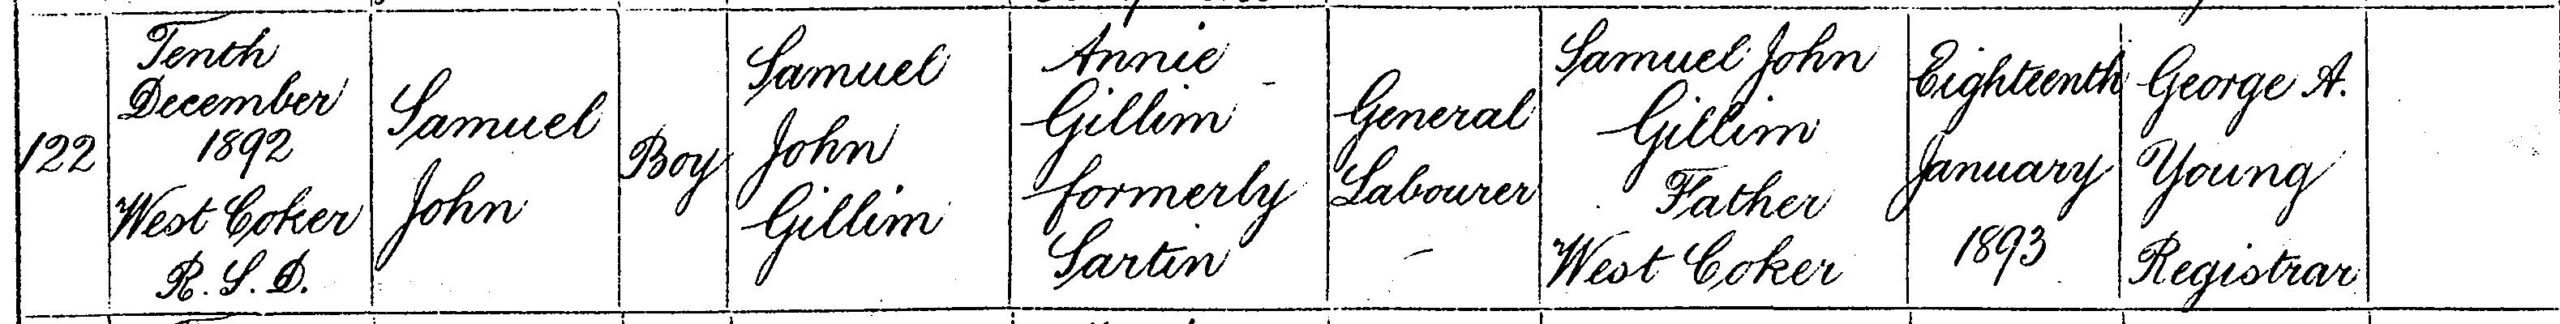 122
Tenth
December
1892
West Coker
R. S. D.
Samuel
John
Boy
Samuel
John
Gillim
Annie
Gillim
formerly
Sartin
General
Labourer
Samuel John
Gillim
Father
West Coker
Eighteenth
January
1893
George A.
Young
Registrar